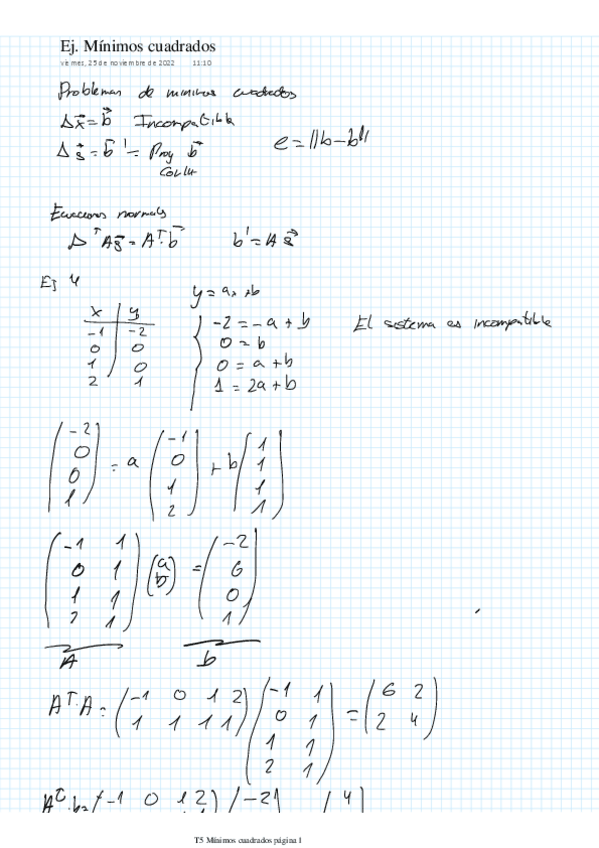 Ej. Mínimos cuadrados
viernes, 25 de noviembre de 2022 11:10
Problemas de minimos cuadrados
A x⃗ = b⃗ Incompatible
A s⃗ = b⃗' = Proy b⃗ e = ||b - b'||
Col(A)
Ecuaciones normales
Aᵀ A s⃗ = Aᵀ · b⃗ b' = A s⃗
Ej 4
y = ax + b
x | y
-1 | -2 -2 = -a + b El sistema es incompatible
0 | 0 0 = b
1 | 0 0 = a + b
2 | 1 1 = 2a + b
(-2 0 0 1) = a (-1 0 1 2) + b (1 1 1 1)
(-1 1
0 1
1 1
2 1) (a b) = (-2 0 0 1)
A b
Aᵀ · A = (-1 0 1 2
1 1 1 1) (-1 1
0 1
1 1
2 1) = (6 2
2 4)
Aᵀ · b = (-1 0 1 2) (-2) (4)
T5 Mínimos cuadrados página 1